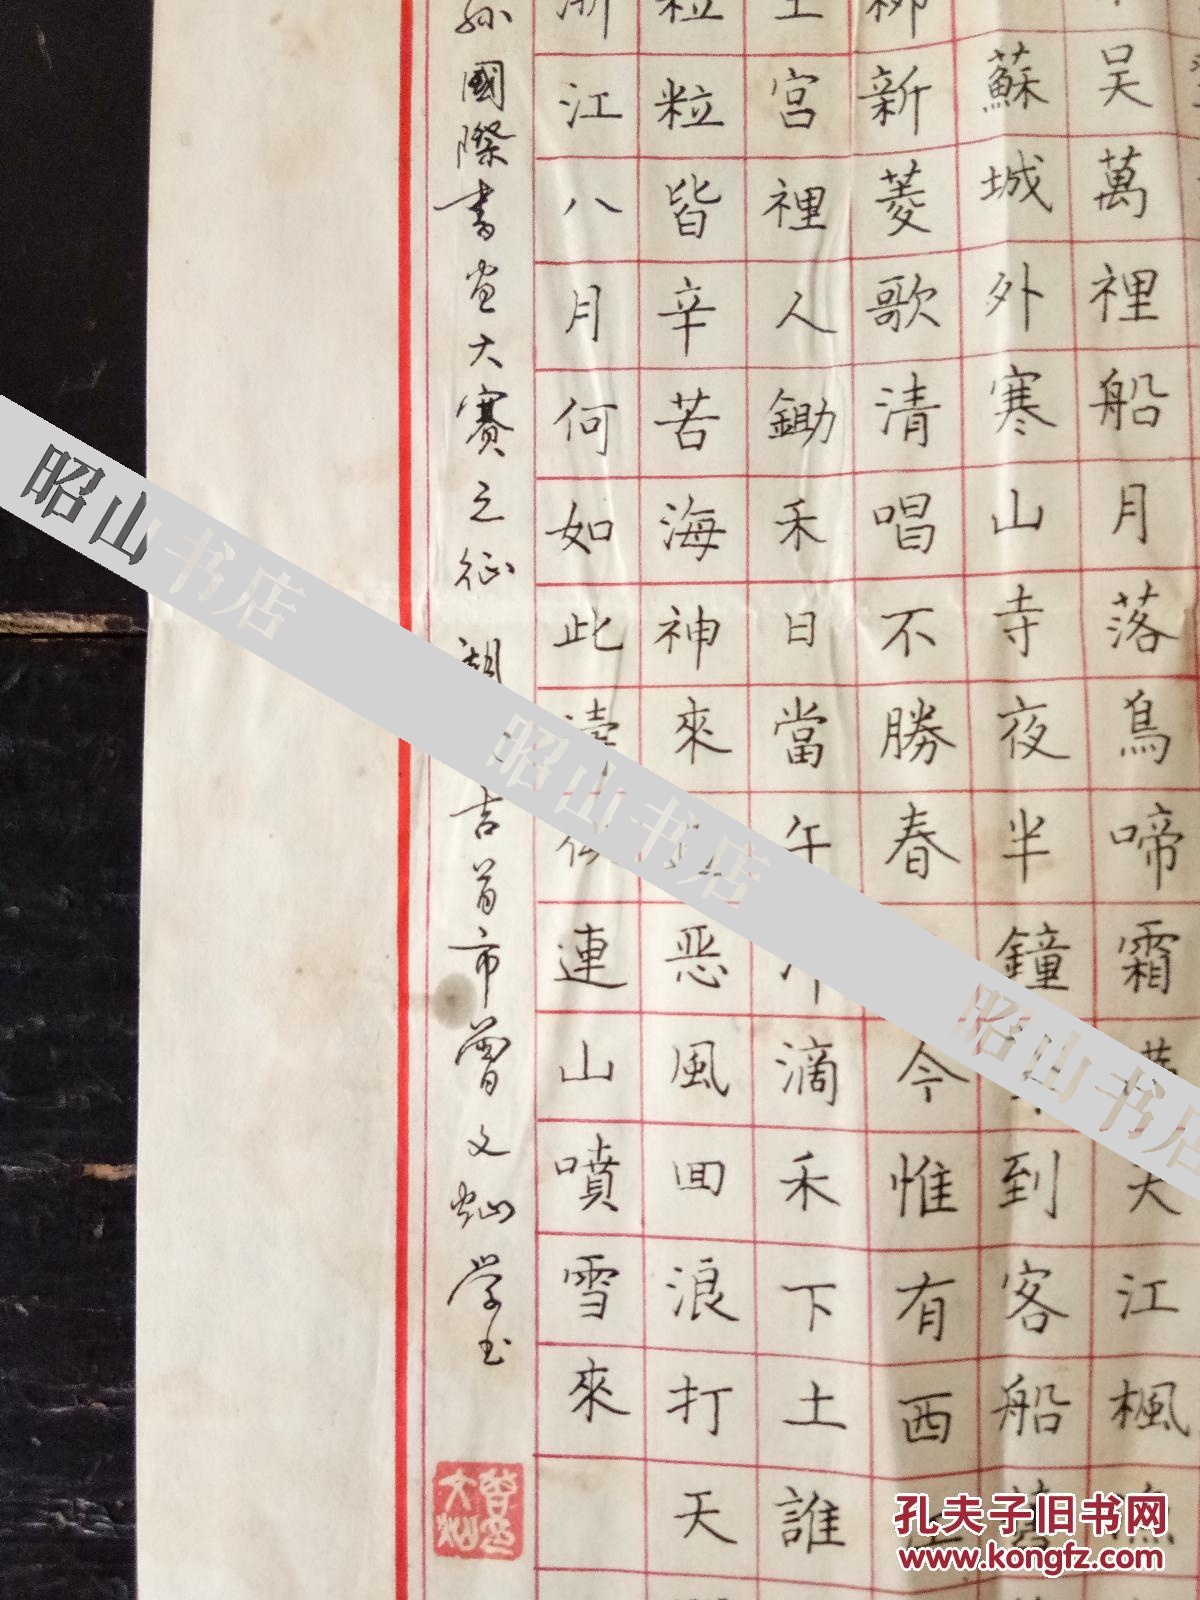 吴萬裡船月落鳥啼霜天江楓漁
蘇城外寒山寺夜半鐘到客船舊
柳新菱歌清唱不勝春今惟有西江
王宮裡人鋤禾日當午汗滴禾下土誰
粒粒皆辛苦海神來惡風回浪打天
浙江八月何如此濤似連山噴雪來
孫國際書画大賽之征 吉首市曾文灿学书
曾文灿
昭山书店
昭山书店
昭山书店
孔夫子旧书网
www.kongfz.com